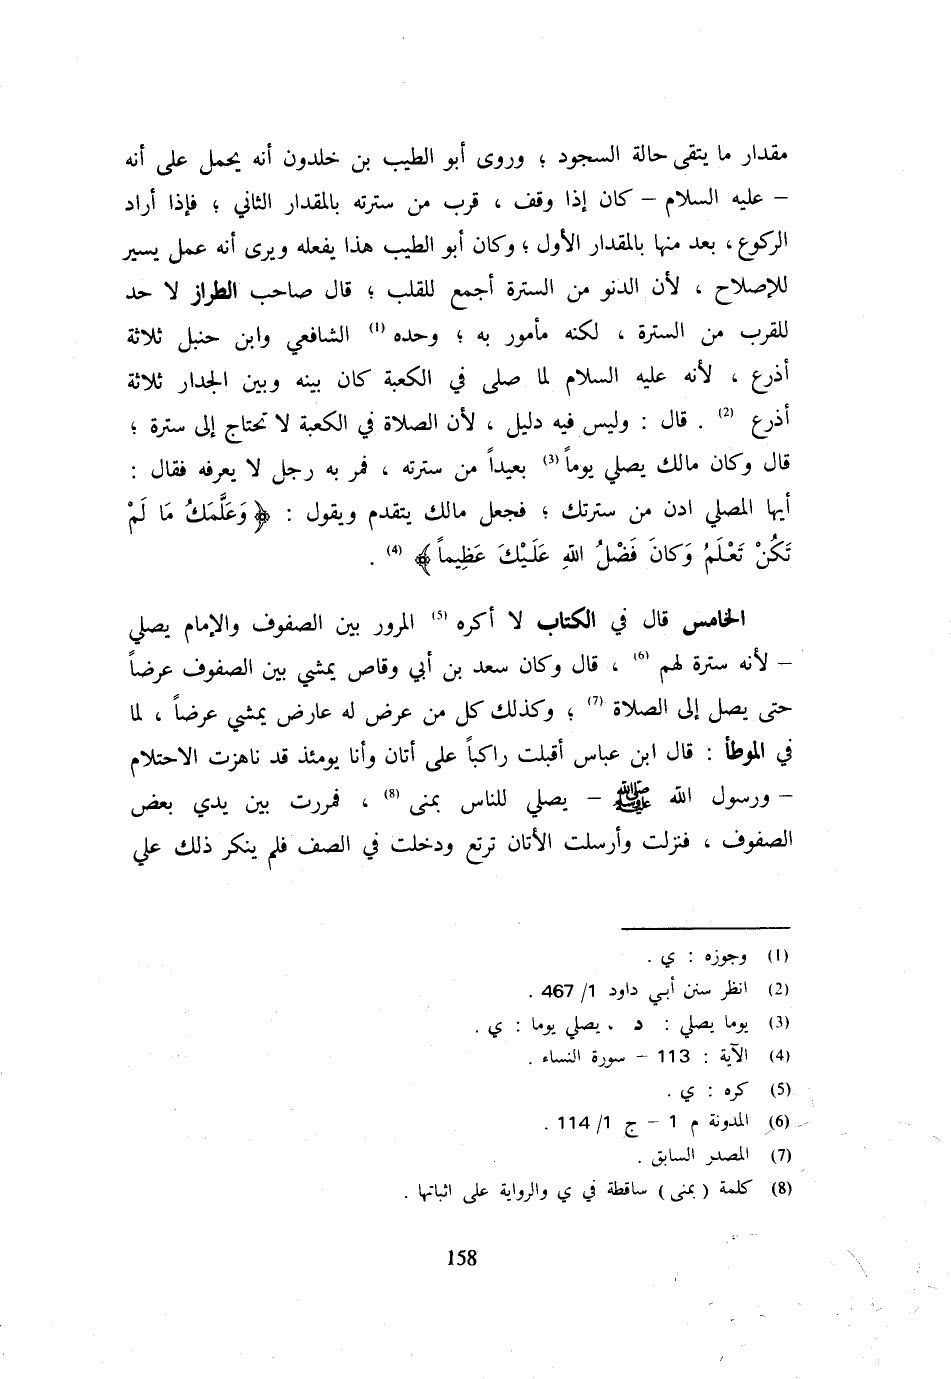 مقدار ما يتقى حالة السجود ؛ وروى أبو الطيب بن خلدون أنه يحمل على أنه
– عليه السلام – كان إذا وقف ، قرب من سترته بالمقدار الثاني ؛ فإذا أراد
الركوع، بعد منها بالمقدار الأول ؛ وكان أبو الطيب هذا يفعله ويرى أنه عمل يسير
للإصلاح ، لأن الدنو من السترة أجمع للقلب ؛ قال صاحب الطراز لا حد
للقرب من السترة ، لكنه مأمور به ؛ وحده (1) الشافعي وابن حنبل ثلاثة
أذرع ، لأنه عليه السلام لما صلى في الكعبة كان بينه وبين الجدار ثلاثة
أذرع (2) . قال : وليس فيه دليل ، لأن الصلاة في الكعبة لا تحتاج إلى سترة ؛
قال وكان مالك يصلي يوماً (3) بعيداً من سترته ، فمر به رجل لا يعرفه فقال :
أيها المصلي ادن من سترتك ؛ فجعل مالك يتقدم ويقول : ﴿ وَعَلَّمَكُ مَا لَمْ
تَكُنْ تَعْلَمُ وَكانَ فَضْلُ اللهِ عَلَيْكَ عَظِيماً ﴾ (4) .
الخامس قال في الكتاب لا أكره (5) المرور بين الصفوف والإمام يصلي
– لأنه سترة لهم (6) ، قال وكان سعد بن أبي وقاص يمشي بين الصفوف عرضاً
حتى يصل إلى الصلاة (7) ؛ وكذلك كل من عرض له عارض يمشي عرضاً ، لما
في الموطأ : قال ابن عباس أقبلت راكباً على أتان وأنا يومئذ قد ناهزت الاحتلام
– ورسول الله ﷺ – يصلي للناس بمنى (8) ، فمررت بين يدي بعض
الصفوف ، فنزلت وأرسلت الأتان ترتع ودخلت في الصف فلم ينكر ذلك علي
(1) وجوزه : ي .
(2) انظر سنن أبي داود 1/ 467 .
(3) يوما يصلي : د . يصلي يوما : ي .
(4) الآية : 113 – سورة النساء .
(5) كره : ي .
(6) المدونة م 1 – ج 1/ 114 .
(7) المصدر السابق .
(8) كلمة ( بمنى ) ساقطة في ي والرواية على اثباتها .
158